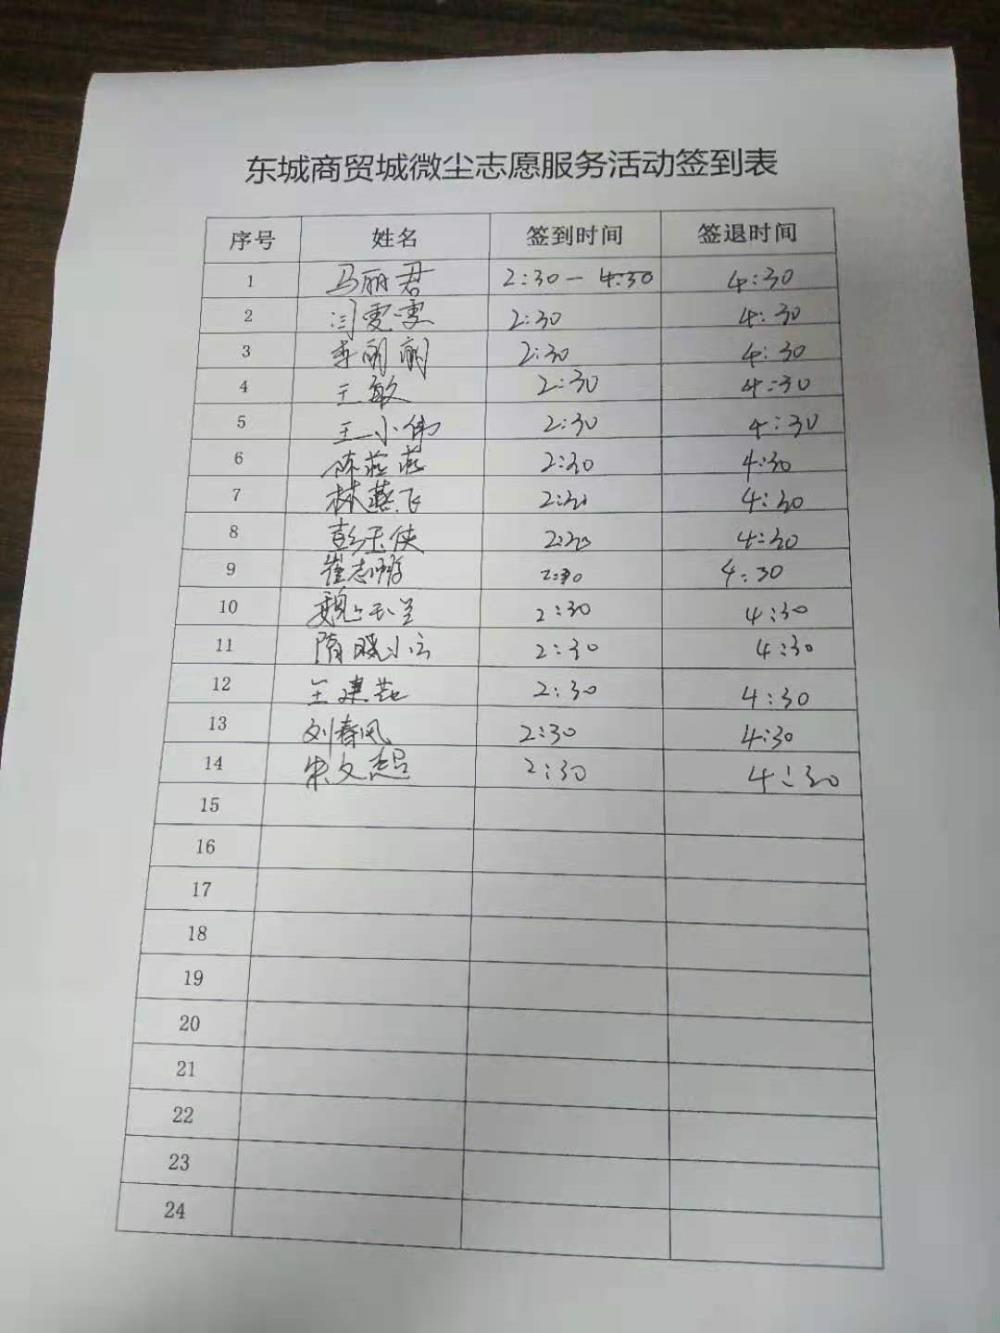 东城商贸城微尘志愿服务活动签到表
序号 姓名 签到时间 签退时间
1 马丽君 2:30-4:30 4:30
2 闫雯雯 2:30 4:30
3 李丽丽 2:30 4:30
4 王敏 2:30 4:30
5 王小伟 2:30 4:30
6 陈燕燕 2:30 4:30
7 林燕飞 2:30 4:30
8 彭玉侠 2:30 4:30
9 崔志 2:30 4:30
10 魏玉兰 2:30 4:30
11 隋晓云 2:30 4:30
12 王建 2:30 4:30
13 刘春风 2:30 4:30
14 朱文超 2:30 4:30
15
16
17
18
19
20
21
22
23
24